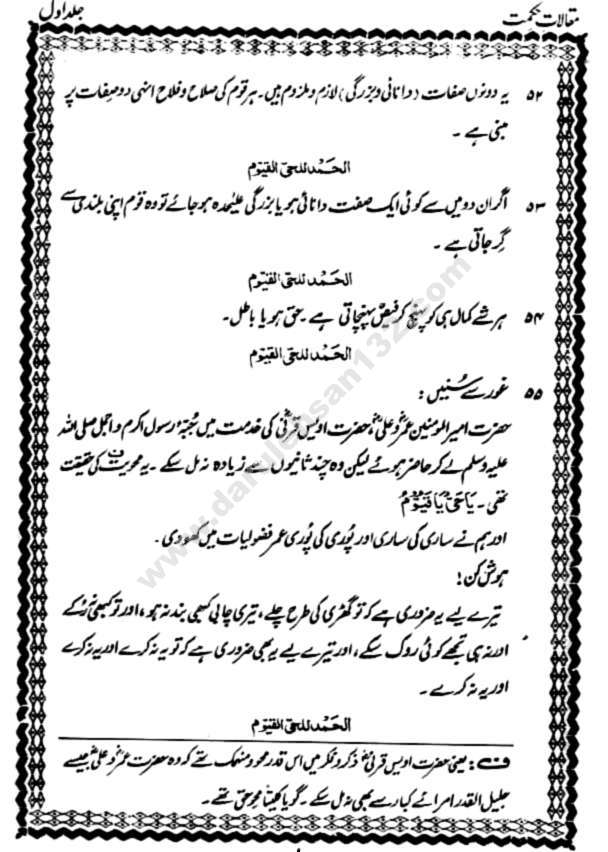 مقالات حکمت
جلد اول
۵۲ یہ دونوں صفات (دانائی و بزرگی) لازم و ملزوم ہیں۔ ہر قوم کی صلاح و فلاح انہی دو صفات پر
مبنی ہے ۔
الحمد للحی القیوم
۵۳ اگر ان دو میں سے کوئی ایک صفت دانائی ہو یا بزرگی علیٰحدہ ہو جائے تو وہ قوم اپنی بلندی سے
گر جاتی ہے ۔
الحمد للحی القیوم
۵۴ ہر شے کمال ہی کو پہنچ کر فیض پہنچاتی ہے ۔ حق ہو یا باطل۔
الحمد للحی القیوم
۵۵ غور سے سُنیں :
حضرت امیر المومنین عمرؓ و علیؓ، حضرت اویس قرنیؓ کی خدمت میں جُبّہ رسول اکرم و اجمل صلی اللہ
علیہ وسلم لے کر حاضر ہوئے لیکن وہ چند ثانیوں سے زیادہ نہ مل سکے ۔ یہ محویت ف کی حقیقت
تھی ۔ یَا حَیُّ یَا قَیُّوْمُ
اور ہم نے ساری کی ساری اور پُوری کی پُوری عمر فضولیات میں کھو دی ۔
ہوش کن!
تیرے لیے یہ ضروری ہے کہ تو گھڑی کی طرح چلے ، تیری چابی کبھی بند نہ ہو ، اور تو کبھی نہ رُکے
اور نہ ہی تجھے کوئی روک سکے ، اور تیرے لیے یہ بھی ضروری ہے کہ تو یہ نہ کرے اور یہ نہ کرے
اور یہ نہ کرے ۔
الحمد للحی القیوم
ف : یعنی حضرت اویس قرنیؓ ذکر و فکر میں اس قدر محو و منہمک تھے کہ وہ حضرت عمرؓ و علیؓ جیسے
جلیل القدر امرائے کبار سے بھی نہ مل سکے ۔ گویا کلیتاً محو حق تھے ۔
www.darulehsan132.com